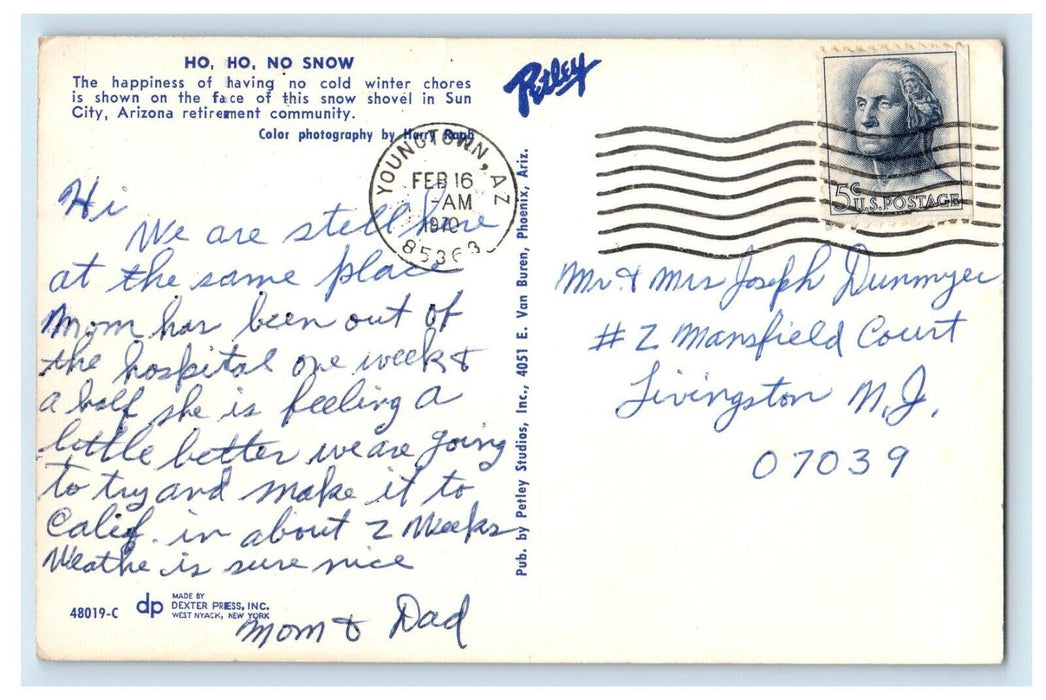 HO, HO, NO SNOW
The happiness of having no cold winter chores
is shown on the face of this snow shovel in Sun
City, Arizona retirement community.
Color photography by Harry Raph
Petley
YOUNGTOWN, AZ
FEB 16
-AM
1970
85363
5c
U.S. POSTAGE
Hi
We are still here
at the same place
Mom has been out of
the hospital one week &
a half she is feeling a
little better we are going
to try and make it to
Calif. in about 2 Weeks
Weathe is sure nice
Mom & Dad
Pub. by Petley Studios, Inc., 4051 E. Van Buren, Phoenix, Ariz.
Mr & Mrs Joseph Dunmyer
# 2 Mansfield Court
Livingston N.J.
07039
48019-C
dp
MADE BY
DEXTER PRESS, INC.
WEST NYACK, NEW YORK